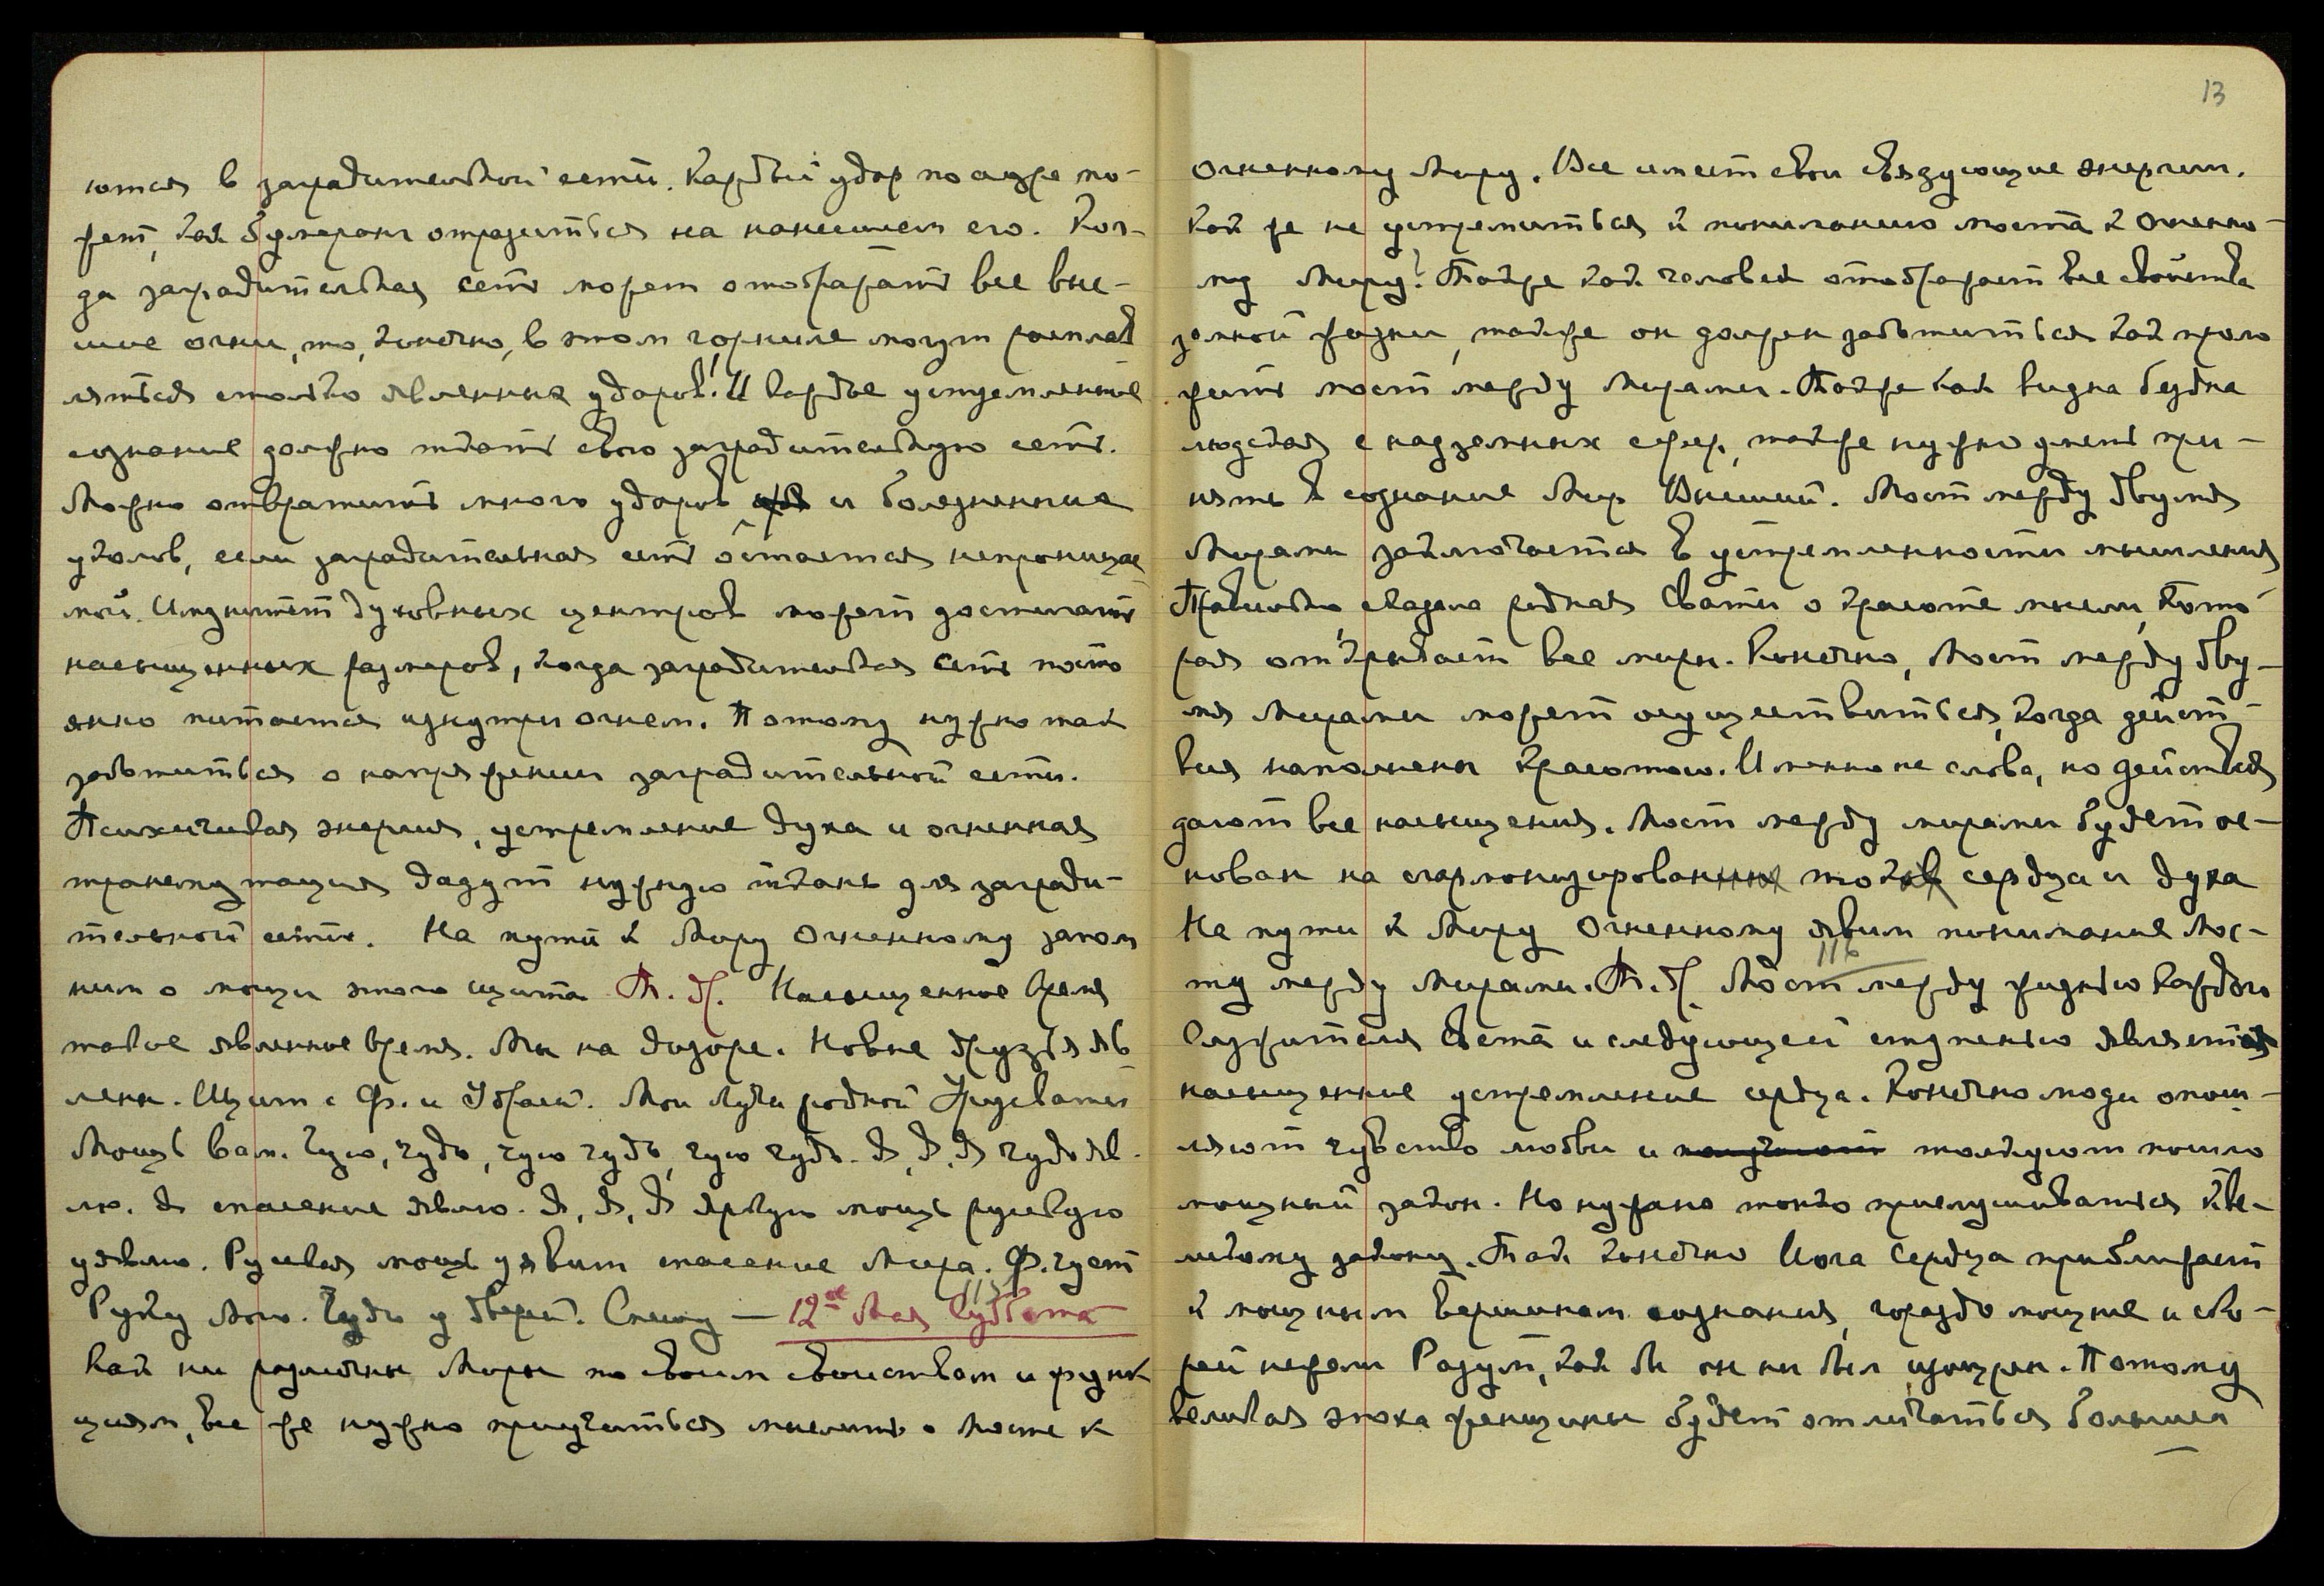 ются в заградительной сети. Каждый удар по ауре мо-
жет, как бумеранг отразиться на нанесшем его. Ког-
да заградительная сеть может отображать все выс-
шие огни, то, конечно, в этом горниле могут расплав
ляться столько явленных ударов! И каждое устремленное
сознание должно ткать свою заградительную сеть.
Можно отвратить много ударов и болезненные
уколов, если заградительная сеть остается непроницае
мой. Иммунитет духовных центров может достигать
насыщенных размеров, когда заградительная сеть посто
янно питается изнутри огнем. Потому нужно так
заботиться о напряжении заградительной сети.
Психическая энергия, устремление духа и огненная
трансмутация дадут нужную ткань для загради-
тельной сети. На пути к Миру Огненному запом
ним о мощи этого щита. Т. Д. Насыщенное время
такое явленное время. Мы на дозоре. Новые друзья яв
лены. Щит с Ф. и Удраей. Мои Лучи родной Урусвати
Мощь вам. Чую, чудо, чую чудо, чую чудо. Я, Я, Я чудо яв-
лю. Я спасение явлю. Я, Я, Я яркую мощь русскую
уявлю. Русская мощь уявит спасение Мира. Ф. чует
Руку Мою. Чудо у дверей. Спешу — 12ое Мая Суббота
115
Как ни различны Миры по своим свойствам и функ
циям, все же нужно приучиться мыслить о Мосте к
13
Огненному Миру. Все имеет свои связующие энергии.
Как же не устремиться к пониманию моста к Огненно-
му Миру? Также как человек отображает все свойства
земной жизни, также он должен заботиться как проло
жить мост между Мирами. Также как видна бездна
людская с надземных сфер, также нужно уметь при-
нять в сознание Мир Высший. Мост между двумя
Мирами заключается в устремленности мышления
Правильно сказала родная Свати о красоте мысли, кото
рая открывает все миры. Конечно, Мост между дву-
мя Мирами может осуществиться, когда дейст-
вия наполнены красотою. Именно не слова, но действия
дают все насыщения. Мост между мирами будет ос-
нован на сгармонизирован токов сердца и духа
На пути к Миру Огненному явим понимание Мос-
ту между Мирами. Т. Д. Мост между жизнью каждого
116
Служителя Света и следующей ступенью является
насыщенное устремление сердца. Конечно люди опош-
ляют чувство любви и толкуют пошло
мощный закон. Но нужно тонко прислушиваться к ве-
ликому закону. Так конечно Йога Сердца приближает
к мощным вершинам сознания, гораздо мощнее и ско-
рей нежели Разум, как бы он ни был изощрен. Потому
великая эпоха женщины будет отличаться большей